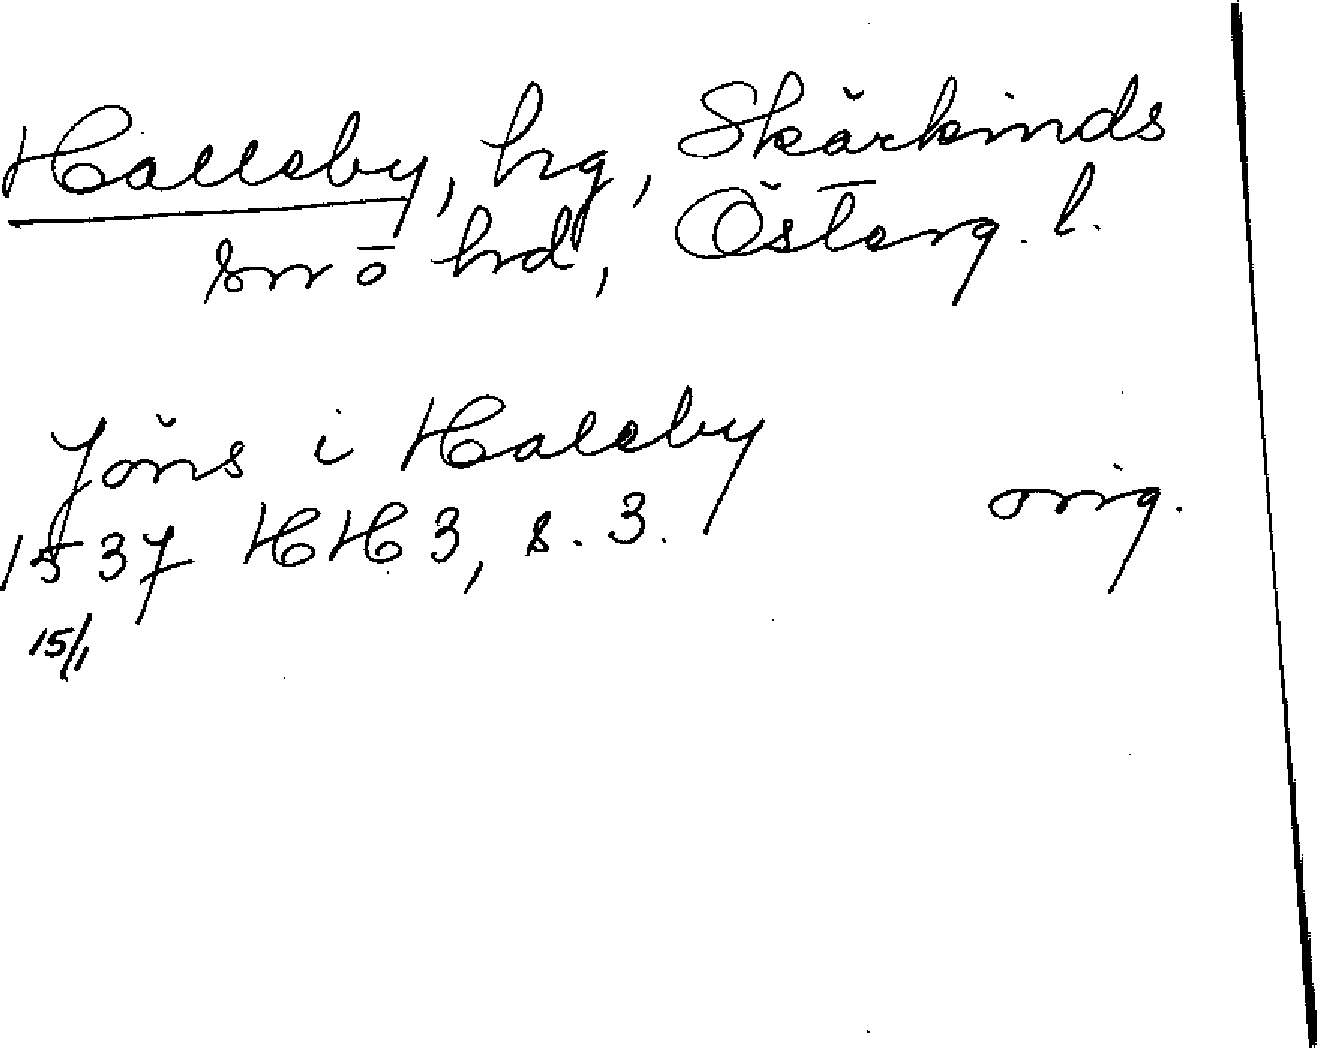 Hallsby, hg, Skärkinds
sn o hd, Österg. l.
Jöns i Halsby
orig.
1537 HH 3, s. 3.
15/1